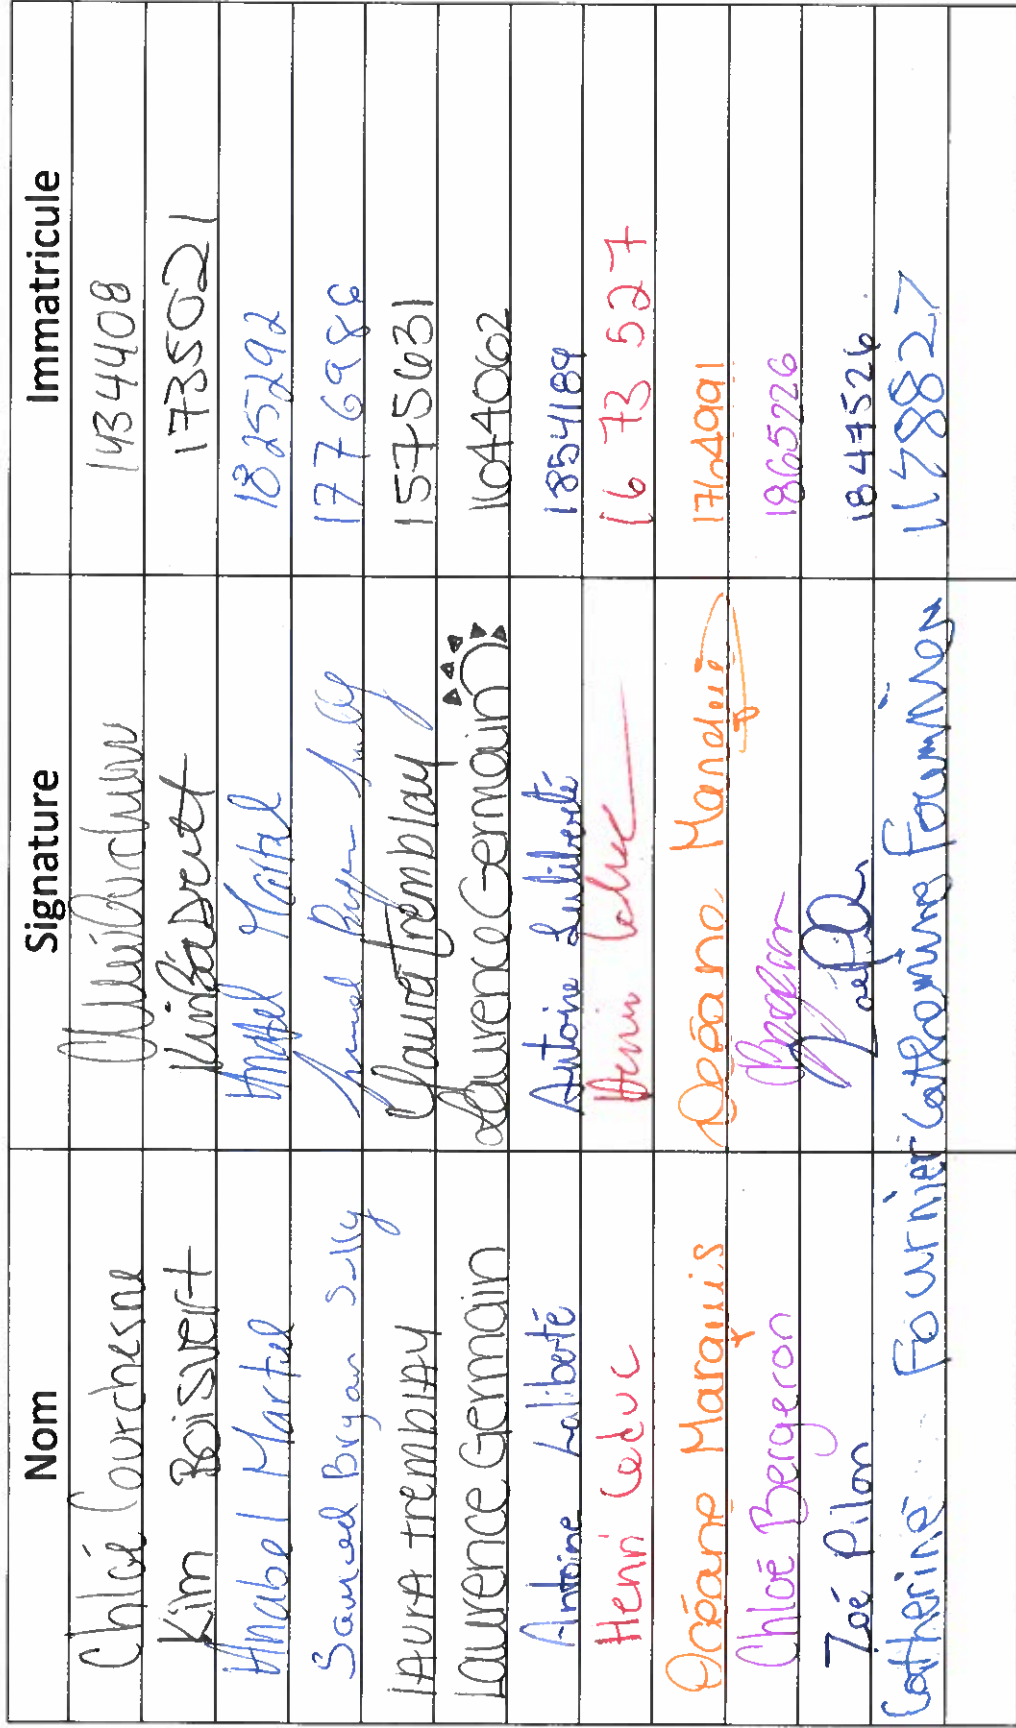 Nom Signature Immatricule
Chloé Courchesne 1434408
Kim Boisvert Kim Boisvert 1735021
Anabel Martel Anabel Martel 1825292
Samuel Bryan Sully 1776986
LAURA TREMBLAY Laura Tremblay 1575631
Laurence Germain Laurence Germain 1644062
Antoine Laliberté Antoine Laliberté 1854189
Henri Leduc Henri Leduc 16 73 527
Océane Marquis Océane Marquis 1764991
Chloé Bergeron 1865226
Zoé Pilon 1847526
Catherine Fournier Catherine Fournier 1178827